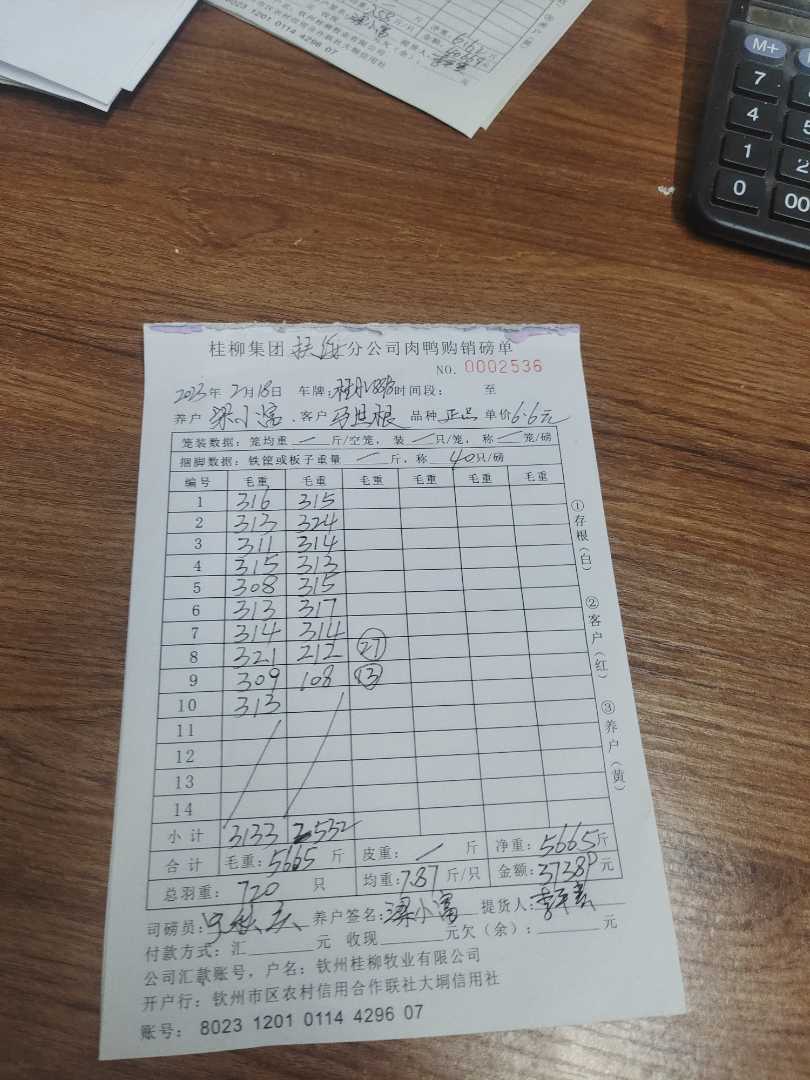 8023 1201 0114 4296 07
M+
7
4
5
1
2
0
00
桂柳集团 分公司肉鸭购销磅单
NO. 0002536
2023年 2月18日 车牌: 时间段: 至
养户 梁小富 客户 品种 正品 单价 6.6元
笼装数据: 笼均重 / 斤/空笼, 装 / 只/笼, 称 / 笼/磅
捆脚数据: 铁筐或板子重量 / 斤, 称 40 只/磅
编号 毛重 毛重 毛重 毛重 毛重 毛重
1 316 315
2 313 324
3 311 314
4 315 313
5 308 315
6 313 317
7 314 314
8 321 212 27
9 309 108 13
10 313
11
12
13
14
小计 3133 2532
合计 毛重: 5665 斤 皮重: / 斤 净重: 5665 斤
总羽重: 720 只 均重: 7.87 斤/只 金额: 37389 元
司磅员: 养户签名: 梁小富 提货人:
付款方式: 汇 元 收现 元欠(余): 元
公司汇款账号, 户名: 钦州桂柳牧业有限公司
开户行: 钦州市区农村信用合作联社大垌信用社
账号: 8023 1201 0114 4296 07
①存根(白)
②客户(红)
③养户(黄)